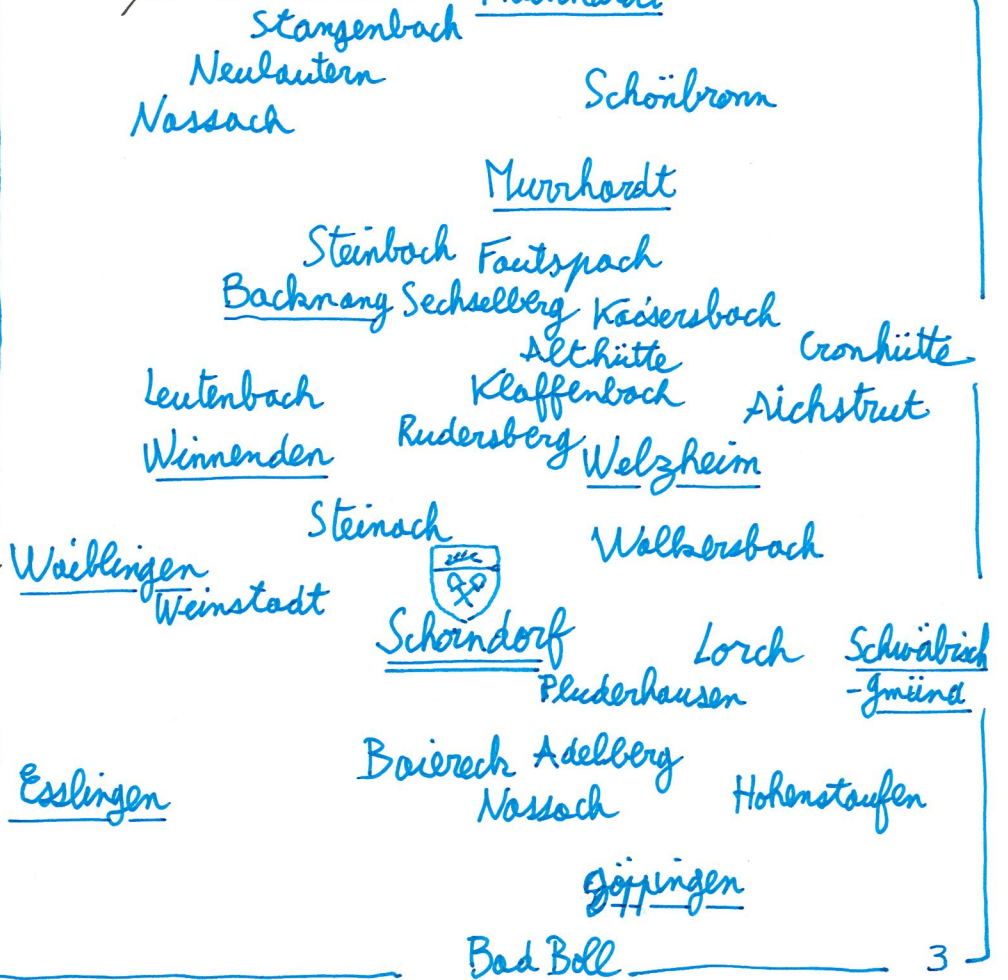 Stangenbach
Neulautern
Schönbronn
Nassach
Murrhardt
Steinbach Fautspach
Backnang Sechselberg Kaisersbach
Althütte Cronhütte
Leutenbach Klaffenbach Aichstrut
Winnenden Rudersberg Welzheim
Steinach Walkersbach
Waiblingen
Weinstadt
Schorndorf Lorch Schwäbisch
Pluderhausen -gmünd
Baiereck Adelberg
Esslingen Nassach Hohenstaufen
göppingen
Bad Boll 3